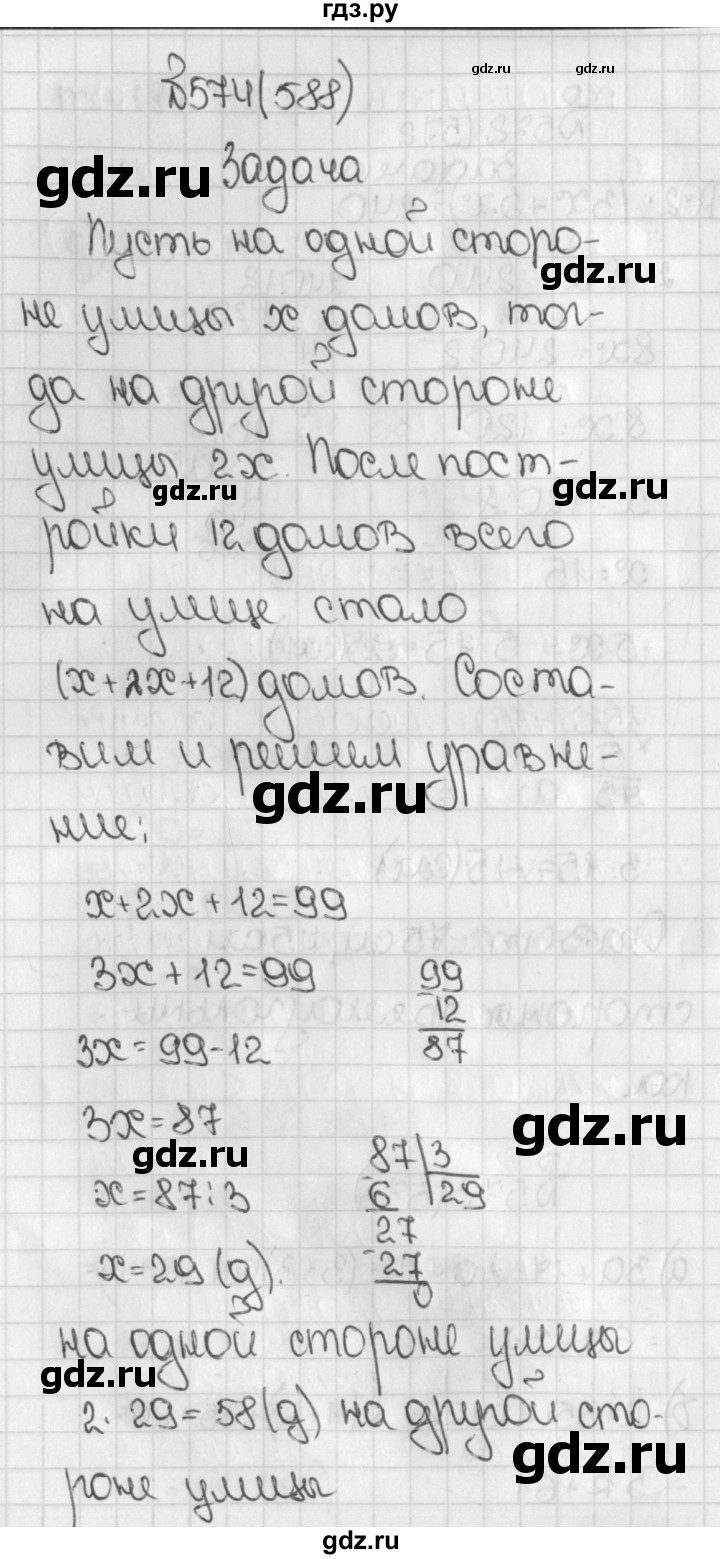 гдз.ру
gdz.ru
gdz.ru
№574(588)
gdz.ru
Задача
Пусть на одной сторо-
gdz.ru
не улицы x домов, тог-
да на другой стороне
улицы 2x. После пост-
gdz.ru
gdz.ru
ройки 12 домов всего
на улице стало
(x+2x+12) домов. Соста-
вим и решим уравне-
gdz.ru
ние:
x+2x+12=99
3x+12=99
99
12
87
3x=99-12
3x=87
gdz.ru
gdz.ru
87 3
x=87:3
6 29
27
x=29 (д).
-27
0
на одной стороне улицы
gdz.ru
2·29=58(д) на другой сто-
gdz.ru
роне улицы
gdz.ru